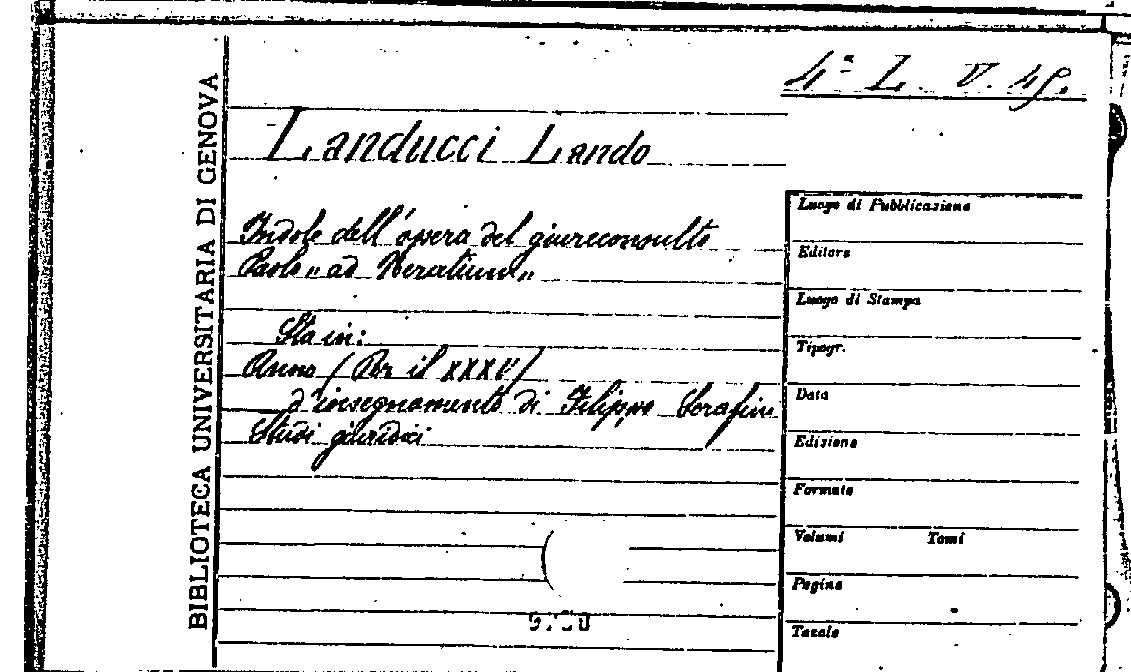 4ª L. V. 49.
Landucci Lando
Indole dell'opera del giureconsulto
Paolo "ad Neratium"
Sta in:
Anno (Per il XXXV)
d'insegnamento di Filippo Serafini
Studi giuridici
BIBLIOTECA UNIVERSITARIA DI GENOVA
Luogo di Pubblicazione
Editore
Luogo di Stampa
Tipogr.
Data
Edizione
Formato
Volumi Tomi
Pagine
Tavole